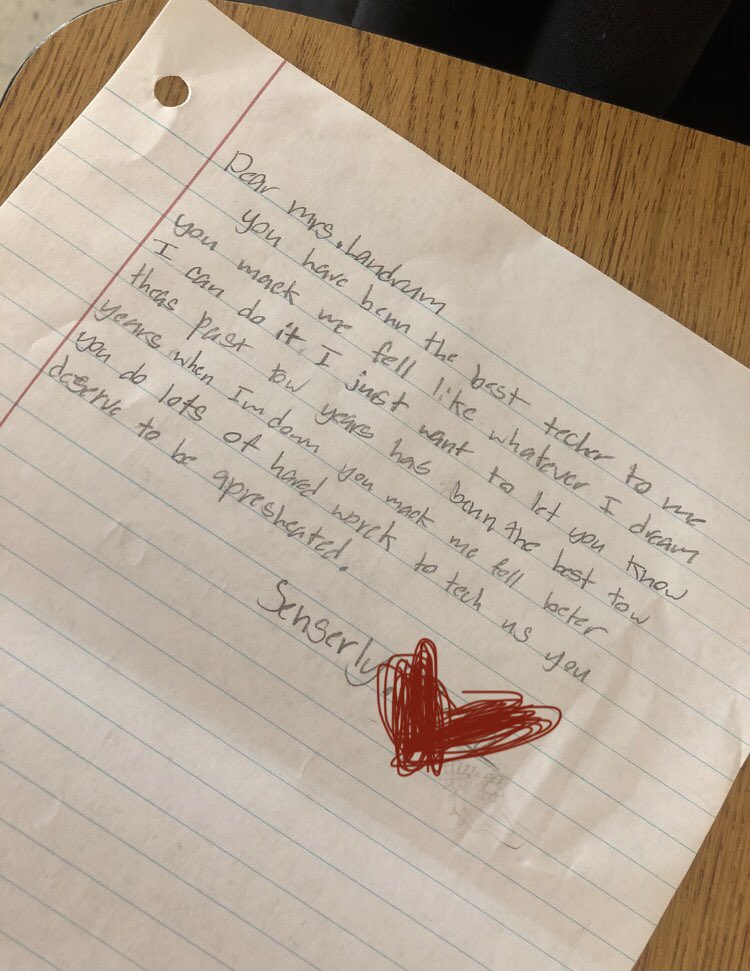 Dear mrs. Landrum
you have benn the best techer to me
you mack me fell like whatever I dream
I can do it. I just want to let you know
theas past tow years has benn the best tow
years when Im down you mack me fell beter
you do lots of hared worck to tech us you
deserve to be apresheated.
Senserly,